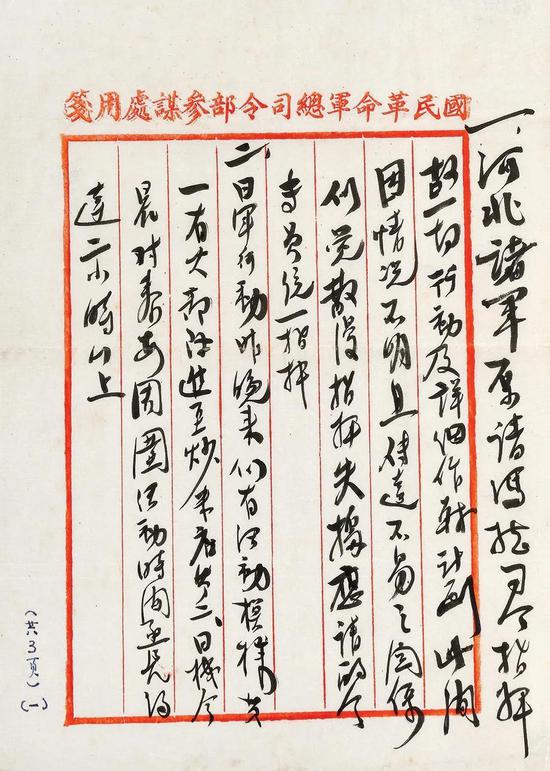 國民革命軍總司令部參謀處用箋
一、河北諸軍原請馮總司令指揮
故一切行動及詳細作戰計劃此間
因情況不明且傳達不易之關係
似覺散漫指揮失據應請明令
專員統一指揮
二、日軍行動昨晚來似有活動模樣其
一有大部隊進至炒米店其二日機今
晨對泰安周圍活動時間至長約
達二小時以上
(共3頁)(一)